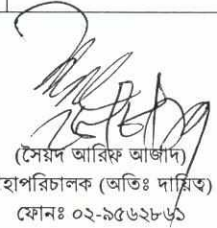 (সৈয়দ আরিফ আজাদ)
হাপরিচালক (অতিঃ দায়িত্ব)
ফোনঃ ০২-৯৫৬২৮৬১